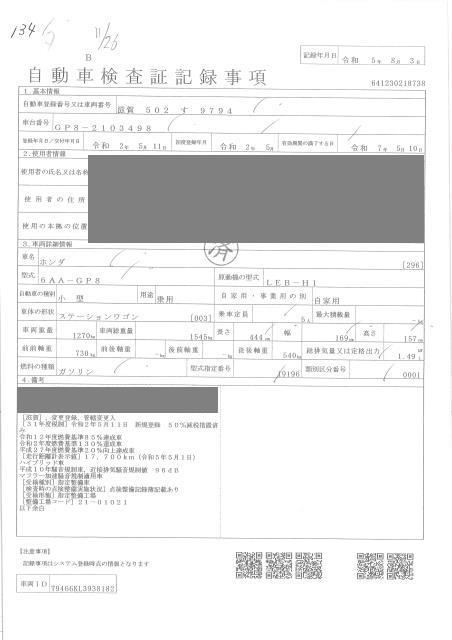 134
11/26
B
記録年月日 令和 5年 8月 3日
自動車検査証記録事項
641230218738
1.基本情報
自動車登録番号又は車両番号 滋賀 502 す 9794
車台番号 GP8-2103498
登録年月日/交付年月日 令和 2年 5月 11日 初度登録年月 令和 2年 5月 有効期間の満了する日 令和 7年 5月 10日
2.使用者情報
使用者の氏名又は名称
使用者の住所
使用の本拠の位置
済
3.車両詳細情報
車名 ホンダ [296]
型式 6AA-GP8 原動機の型式 LEB-H1
自動車の種別 小型 用途 乗用 自家用・事業用の別 自家用
車体の形状 ステーションワゴン [003] 乗車定員 5人 最大積載量 -kg
車両重量 1270kg 車両総重量 1545kg 長さ 444cm 幅 169cm 高さ 157cm
前前軸重 730kg 前後軸重 -kg 後前軸重 -kg 後後軸重 540kg 総排気量又は定格出力 1.49L
燃料の種類 ガソリン 型式指定番号 19196 類別区分番号 0001
4.備考
[滋賀],変更登録,管轄変更入
[31年度税制]令和2年5月11日 新規登録 50%減税措置済
み
令和12年度燃費基準85%達成車
令和2年度燃費基準130%達成車
平成27年度燃費基準20%向上達成車
[走行距離計表示値]17,700km(令和5年5月1日)
ハイブリッド車
平成10年騒音規制車,近接排気騒音規制値 96dB
マフラー加速騒音規制適用車
[受検種別]指定整備車
[検査時の点検整備実施状況]点検整備記録簿記載あり
[受検形態]指定整備工場
[整備工場コード]21-01021
以下余白
【注意事項】
記録事項はシステム登録時点の情報となります
車両ID 79466KL3938182